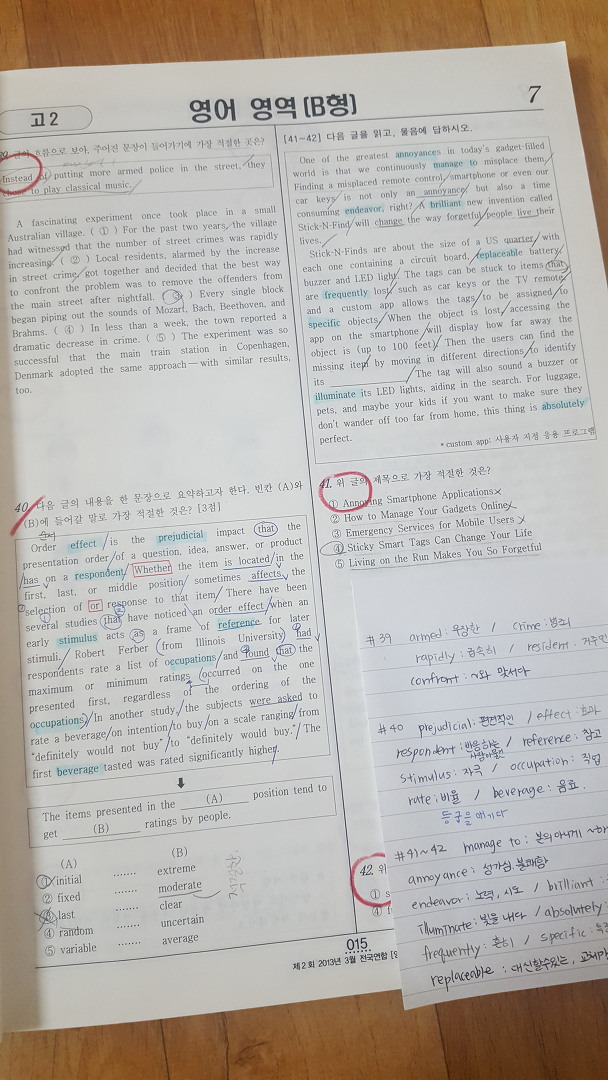 고2
영어 영역 [B형]
7
글의 흐름으로 보아, 주어진 문장이 들어가기에 가장 적절한 곳은?
Instead of putting more armed police in the street, they
chose to play classical music.
A fascinating experiment once took place in a small
Australian village. ( ① ) For the past two years, the village
had witnessed that the number of street crimes was rapidly
increasing. ( ② ) Local residents, alarmed by the increase
in street crime, got together and decided that the best way
to confront the problem was to remove the offenders from
the main street after nightfall. ( ③ ) Every single block
began piping out the sounds of Mozart, Bach, Beethoven, and
Brahms. ( ④ ) In less than a week, the town reported a
dramatic decrease in crime. ( ⑤ ) The experiment was so
successful that the main train station in Copenhagen,
Denmark adopted the same approach — with similar results,
too.
40. 다음 글의 내용을 한 문장으로 요약하고자 한다. 빈칸 (A)와
(B)에 들어갈 말로 가장 적절한 것은? [3점]
Order effect is the prejudicial impact that the
presentation order of a question, idea, answer, or product
has on a respondent. Whether the item is located in the
first, last, or middle position sometimes affects the
selection of or response to that item. There have been
several studies that have noticed an order effect when an
early stimulus acts as a frame of reference for later
stimuli. Robert Ferber (from Illinois University) had
respondents rate a list of occupations and found that the
maximum or minimum ratings occurred on the one
presented first, regardless of the ordering of the
occupations. In another study, the subjects were asked to
rate a beverage on intention to buy on a scale ranging from
"definitely would not buy" to "definitely would buy." The
first beverage tasted was rated significantly higher.
The items presented in the (A) position tend to
get (B) ratings by people.
(A) (B)
① initial ······ extreme
② fixed ······ moderate
③ last ······ clear
④ random ······ uncertain
⑤ variable ······ average
[41~42] 다음 글을 읽고, 물음에 답하시오.
One of the greatest annoyances in today's gadget-filled
world is that we continuously manage to misplace them.
Finding a misplaced remote control, smartphone or even our
car keys is not only an annoyance but also a time
consuming endeavor, right? A brilliant new invention called
Stick-N-Find will change the way forgetful people live their
lives.
Stick-N-Finds are about the size of a US quarter, with
each one containing a circuit board, replaceable battery,
buzzer and LED light. The tags can be stuck to items that
are frequently lost, such as car keys or the TV remote,
and a custom app allows the tags to be assigned to
specific objects. When the object is lost, accessing the
app on the smartphone will display how far away the
object is (up to 100 feet). Then the users can find the
missing item by moving in different directions to identify
its ____________. The tag will also sound a buzzer or
illuminate its LED lights, aiding in the search. For luggage,
pets, and maybe your kids if you want to make sure they
don't wander off too far from home, this thing is absolutely
perfect.
* custom app: 사용자 지정 응용 프로그램
41. 위 글의 제목으로 가장 적절한 것은?
① Annoying Smartphone Applications
② How to Manage Your Gadgets Online
③ Emergency Services for Mobile Users
④ Sticky Smart Tags Can Change Your Life
⑤ Living on the Run Makes You So Forgetful
42. 위
① s
④ f
015
제2회 2013년 3월 전국연합
#39 armed: 무장한 / crime: 범죄
rapidly: 급속히 / resident: 거주민
confront: ~와 맞서다
#40 prejudicial: 편견적인 / effect: 효과
respondent: 반응하는 / reference: 참고
stimulus: 자극 / occupation: 직업
rate: 비율 / beverage: 음료
등급을 매기다
#41~42 manage to: 본의아니게 ~하
annoyance: 성가심, 불쾌함
endeavor: 노력, 시도 / brilliant:
illuminate: 빛을 내다 / absolutely:
frequently: 흔히 / specific:
replaceable: 대신할수있는,